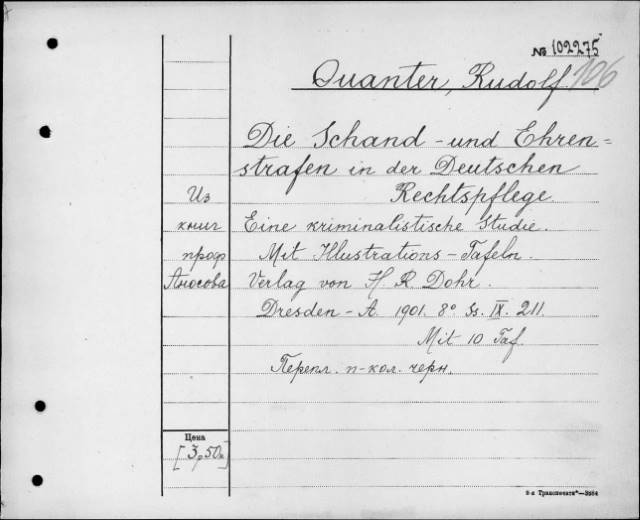 № 102275
Quanter, Rudolf. 106
Die Schand- und Ehren=
strafen in der Deutschen
Rechtspflege
Из
книг
проф
Аносова
Eine kriminalistische Studie.
Mit Illustrations-Tafeln.
Verlag von H. R. Dohrn.
Dresden-A. 1901. 8° Ss. IX. 211.
Mit 10 Taf.
Перепл. п-кол. черн.
Цена
[3р50к]